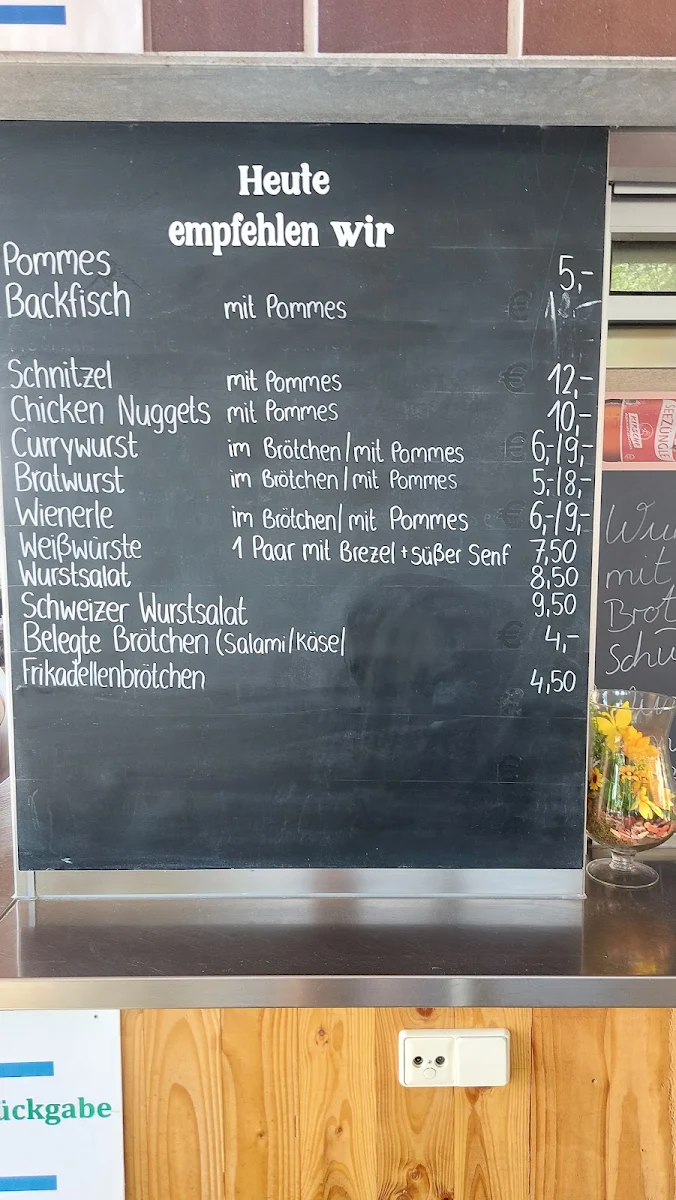 Heute
empfehlen wir
Pommes 5,-
Backfisch mit Pommes
Schnitzel mit Pommes 12,-
Chicken Nuggets mit Pommes 10,-
Currywurst im Brötchen/mit Pommes 6,-/9,-
Bratwurst im Brötchen/mit Pommes 5,-/8,-
Wienerle im Brötchen/mit Pommes 6,-/9,-
Weißwürste 1 Paar mit Brezel + süßer Senf 7,50
Wurstsalat 8,50
Schweizer Wurstsalat 9,50
Belegte Brötchen (Salami/Käse/ 4,-
Frikadellenbrötchen 4,50
SEEZÜNGLE
mit
ückgabe